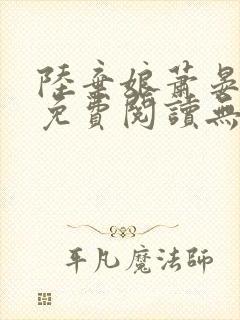 陸棄娘蕭晏
免費閱讀無
平凡魔法師